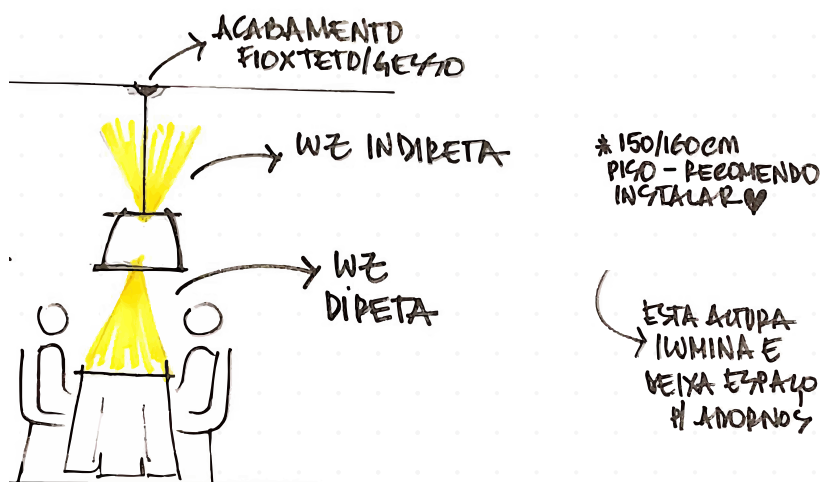 ACABAMENTO
FIOXTETO/GESSO
LUZ INDIRETA
LUZ
DIRETA
* 150/160CM
PISO - RECOMENDO
INSTALAR ♥
ESTA ALTURA
ILUMINA E
DEIXA ESPAÇO
P/ ADORNOS